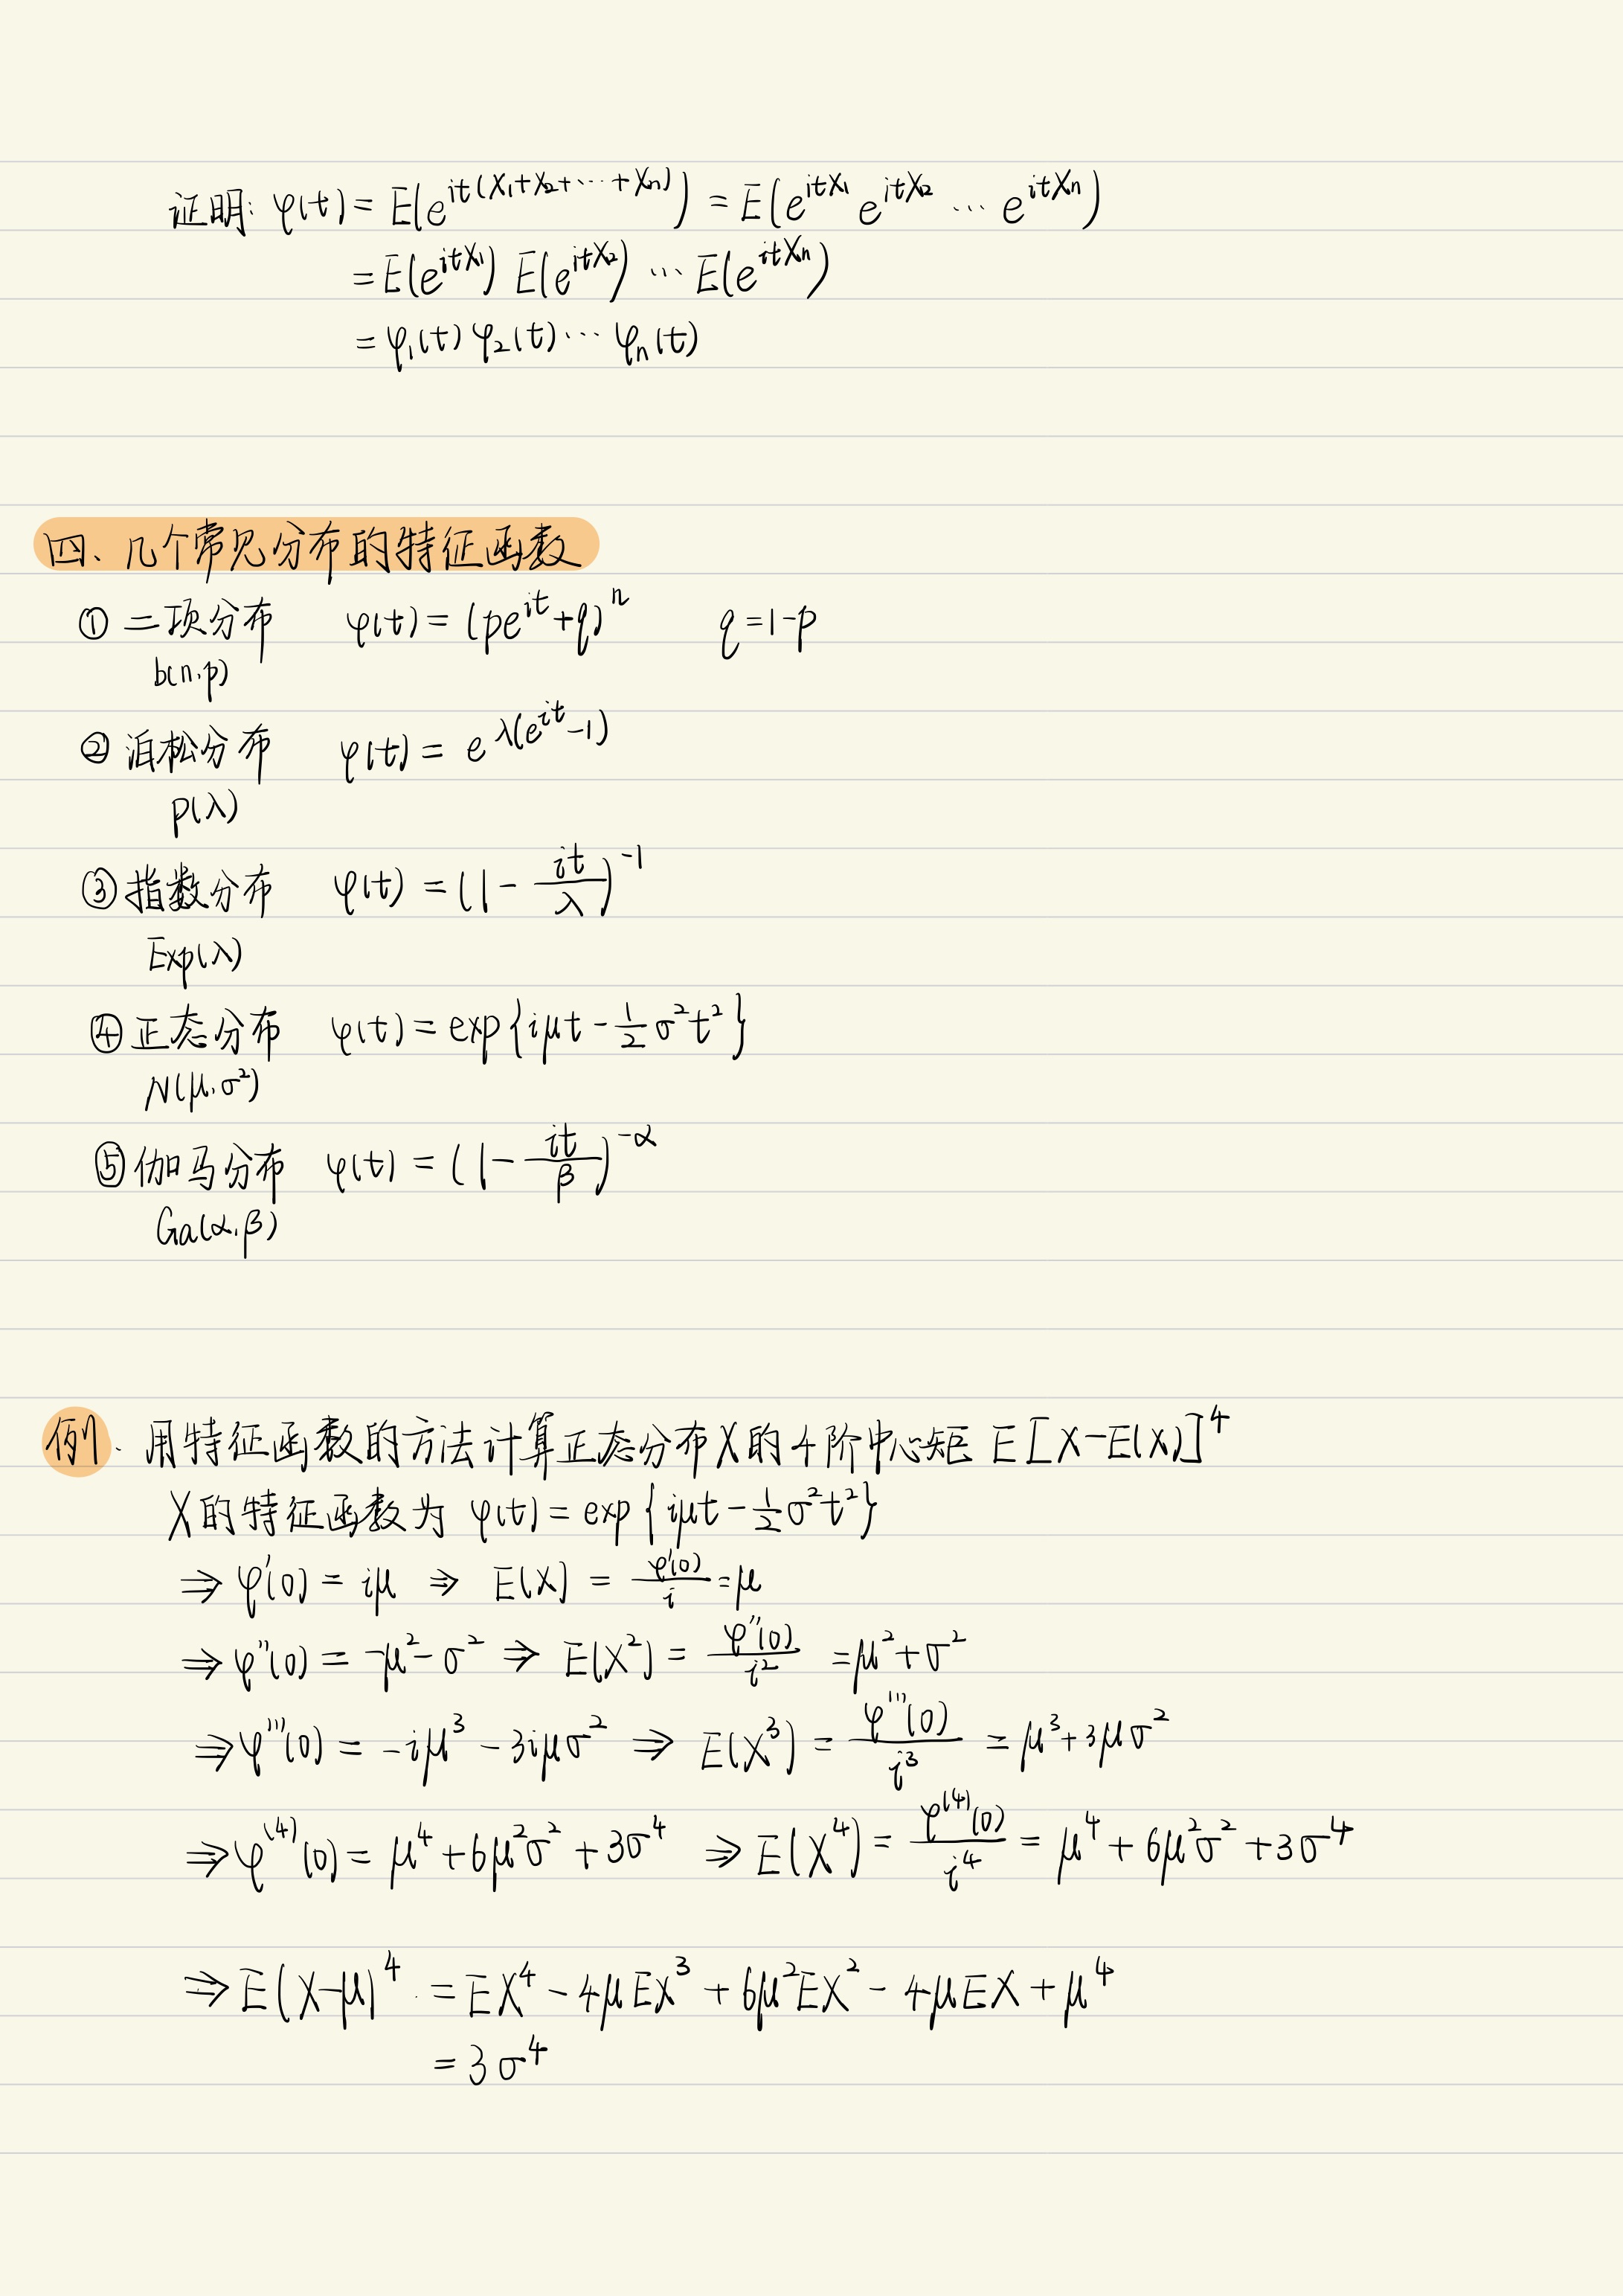 证明: φ(t) = E(e^{it(X₁+X₂+⋯+Xₙ)}) = E(e^{itX₁} e^{itX₂} ⋯ e^{itXₙ})
= E(e^{itX₁}) E(e^{itX₂}) ⋯ E(e^{itXₙ})
= φ₁(t) φ₂(t) ⋯ φₙ(t)
四、几个常见分布的特征函数
① 二项分布 φ(t) = (pe^{it}+q)^n q = 1-p
b(n,p)
② 泊松分布 φ(t) = e^{λ(e^{it}-1)}
p(λ)
③ 指数分布 φ(t) = (1 - it/λ)^{-1}
Exp(λ)
④ 正态分布 φ(t) = exp{iμt - ½σ²t²}
N(μ,σ²)
⑤ 伽马分布 φ(t) = (1 - it/β)^{-α}
Ga(α,β)
例. 用特征函数的方法计算正态分布X的4阶中心矩 E[X-E(X)]⁴
X的特征函数为 φ(t) = exp{iμt - ½σ²t²}
⇒ φ'(0) = iμ ⇒ E(X) = φ'(0)/i = μ
⇒ φ''(0) = -μ² - σ² ⇒ E(X²) = φ''(0)/i² = μ² + σ²
⇒ φ'''(0) = -iμ³ - 3iμσ² ⇒ E(X³) = φ'''(0)/i³ = μ³ + 3μσ²
⇒ φ⁽⁴⁾(0) = μ⁴ + 6μ²σ² + 3σ⁴ ⇒ E(X⁴) = φ⁽⁴⁾(0)/i⁴ = μ⁴ + 6μ²σ² + 3σ⁴
⇒ E(X-μ)⁴ = EX⁴ - 4μEX³ + 6μ²EX² - 4μEX + μ⁴
= 3σ⁴